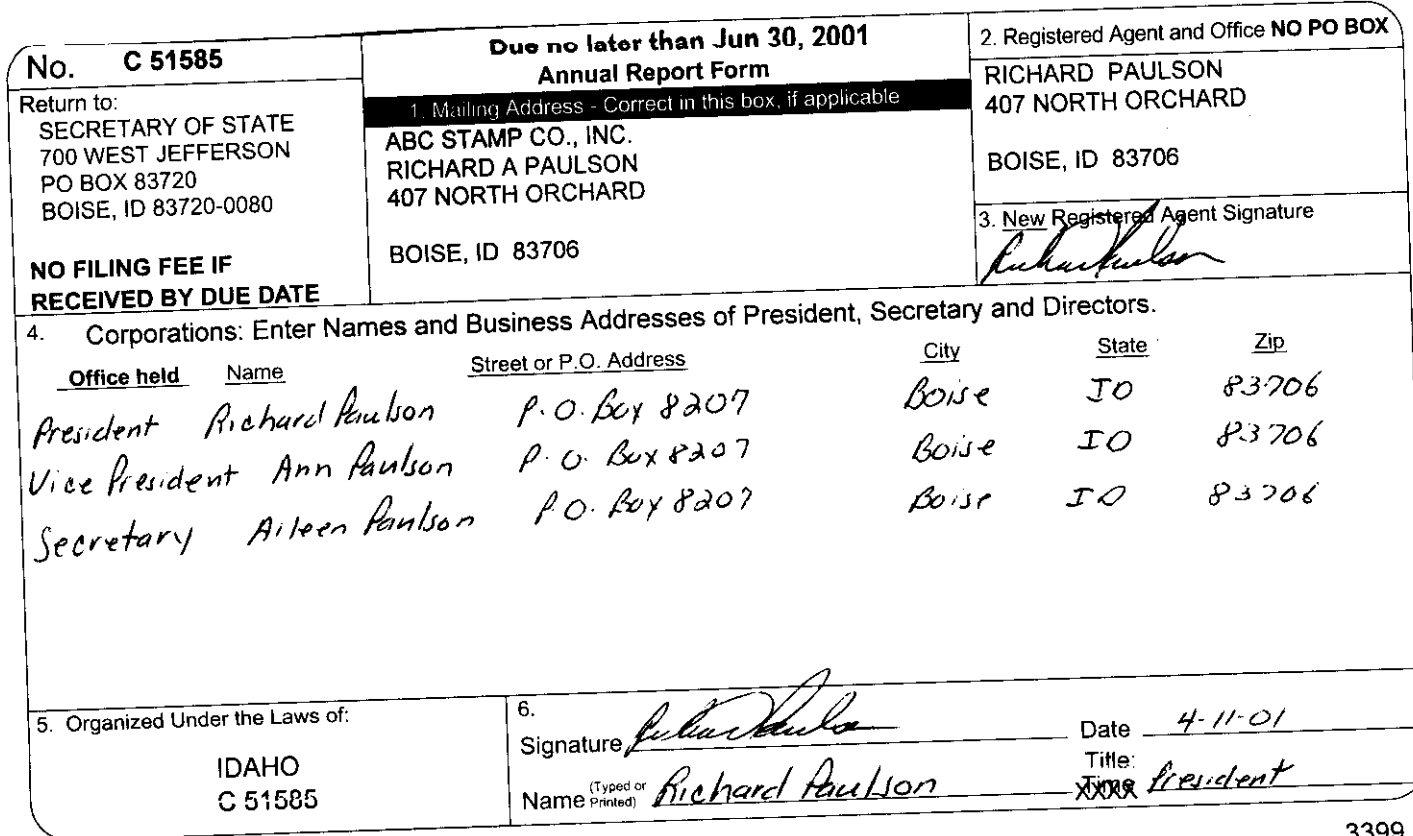 No. C 51585
Return to:
SECRETARY OF STATE
700 WEST JEFFERSON
PO BOX 83720
BOISE, ID 83720-0080
NO FILING FEE IF
RECEIVED BY DUE DATE
Due no later than Jun 30, 2001
Annual Report Form
1. Mailing Address - Correct in this box, if applicable
ABC STAMP CO., INC.
RICHARD A PAULSON
407 NORTH ORCHARD
BOISE, ID 83706
2. Registered Agent and Office NO PO BOX
RICHARD PAULSON
407 NORTH ORCHARD
BOISE, ID 83706
3. New Registered Agent Signature
Richard Paulson
4. Corporations: Enter Names and Business Addresses of President, Secretary and Directors.
Office held Name Street or P.O. Address City State Zip
President Richard Paulson P.O. Box 8207 Boise ID 83706
Vice President Ann Paulson P.O. Box 8207 Boise ID 83706
Secretary Aileen Paulson P.O. Box 8207 Boise ID 83706
5. Organized Under the Laws of:
IDAHO
C 51585
6.
Signature Richard Paulson Date 4-11-01
Name (Typed or Printed) Richard Paulson Title: President
3399